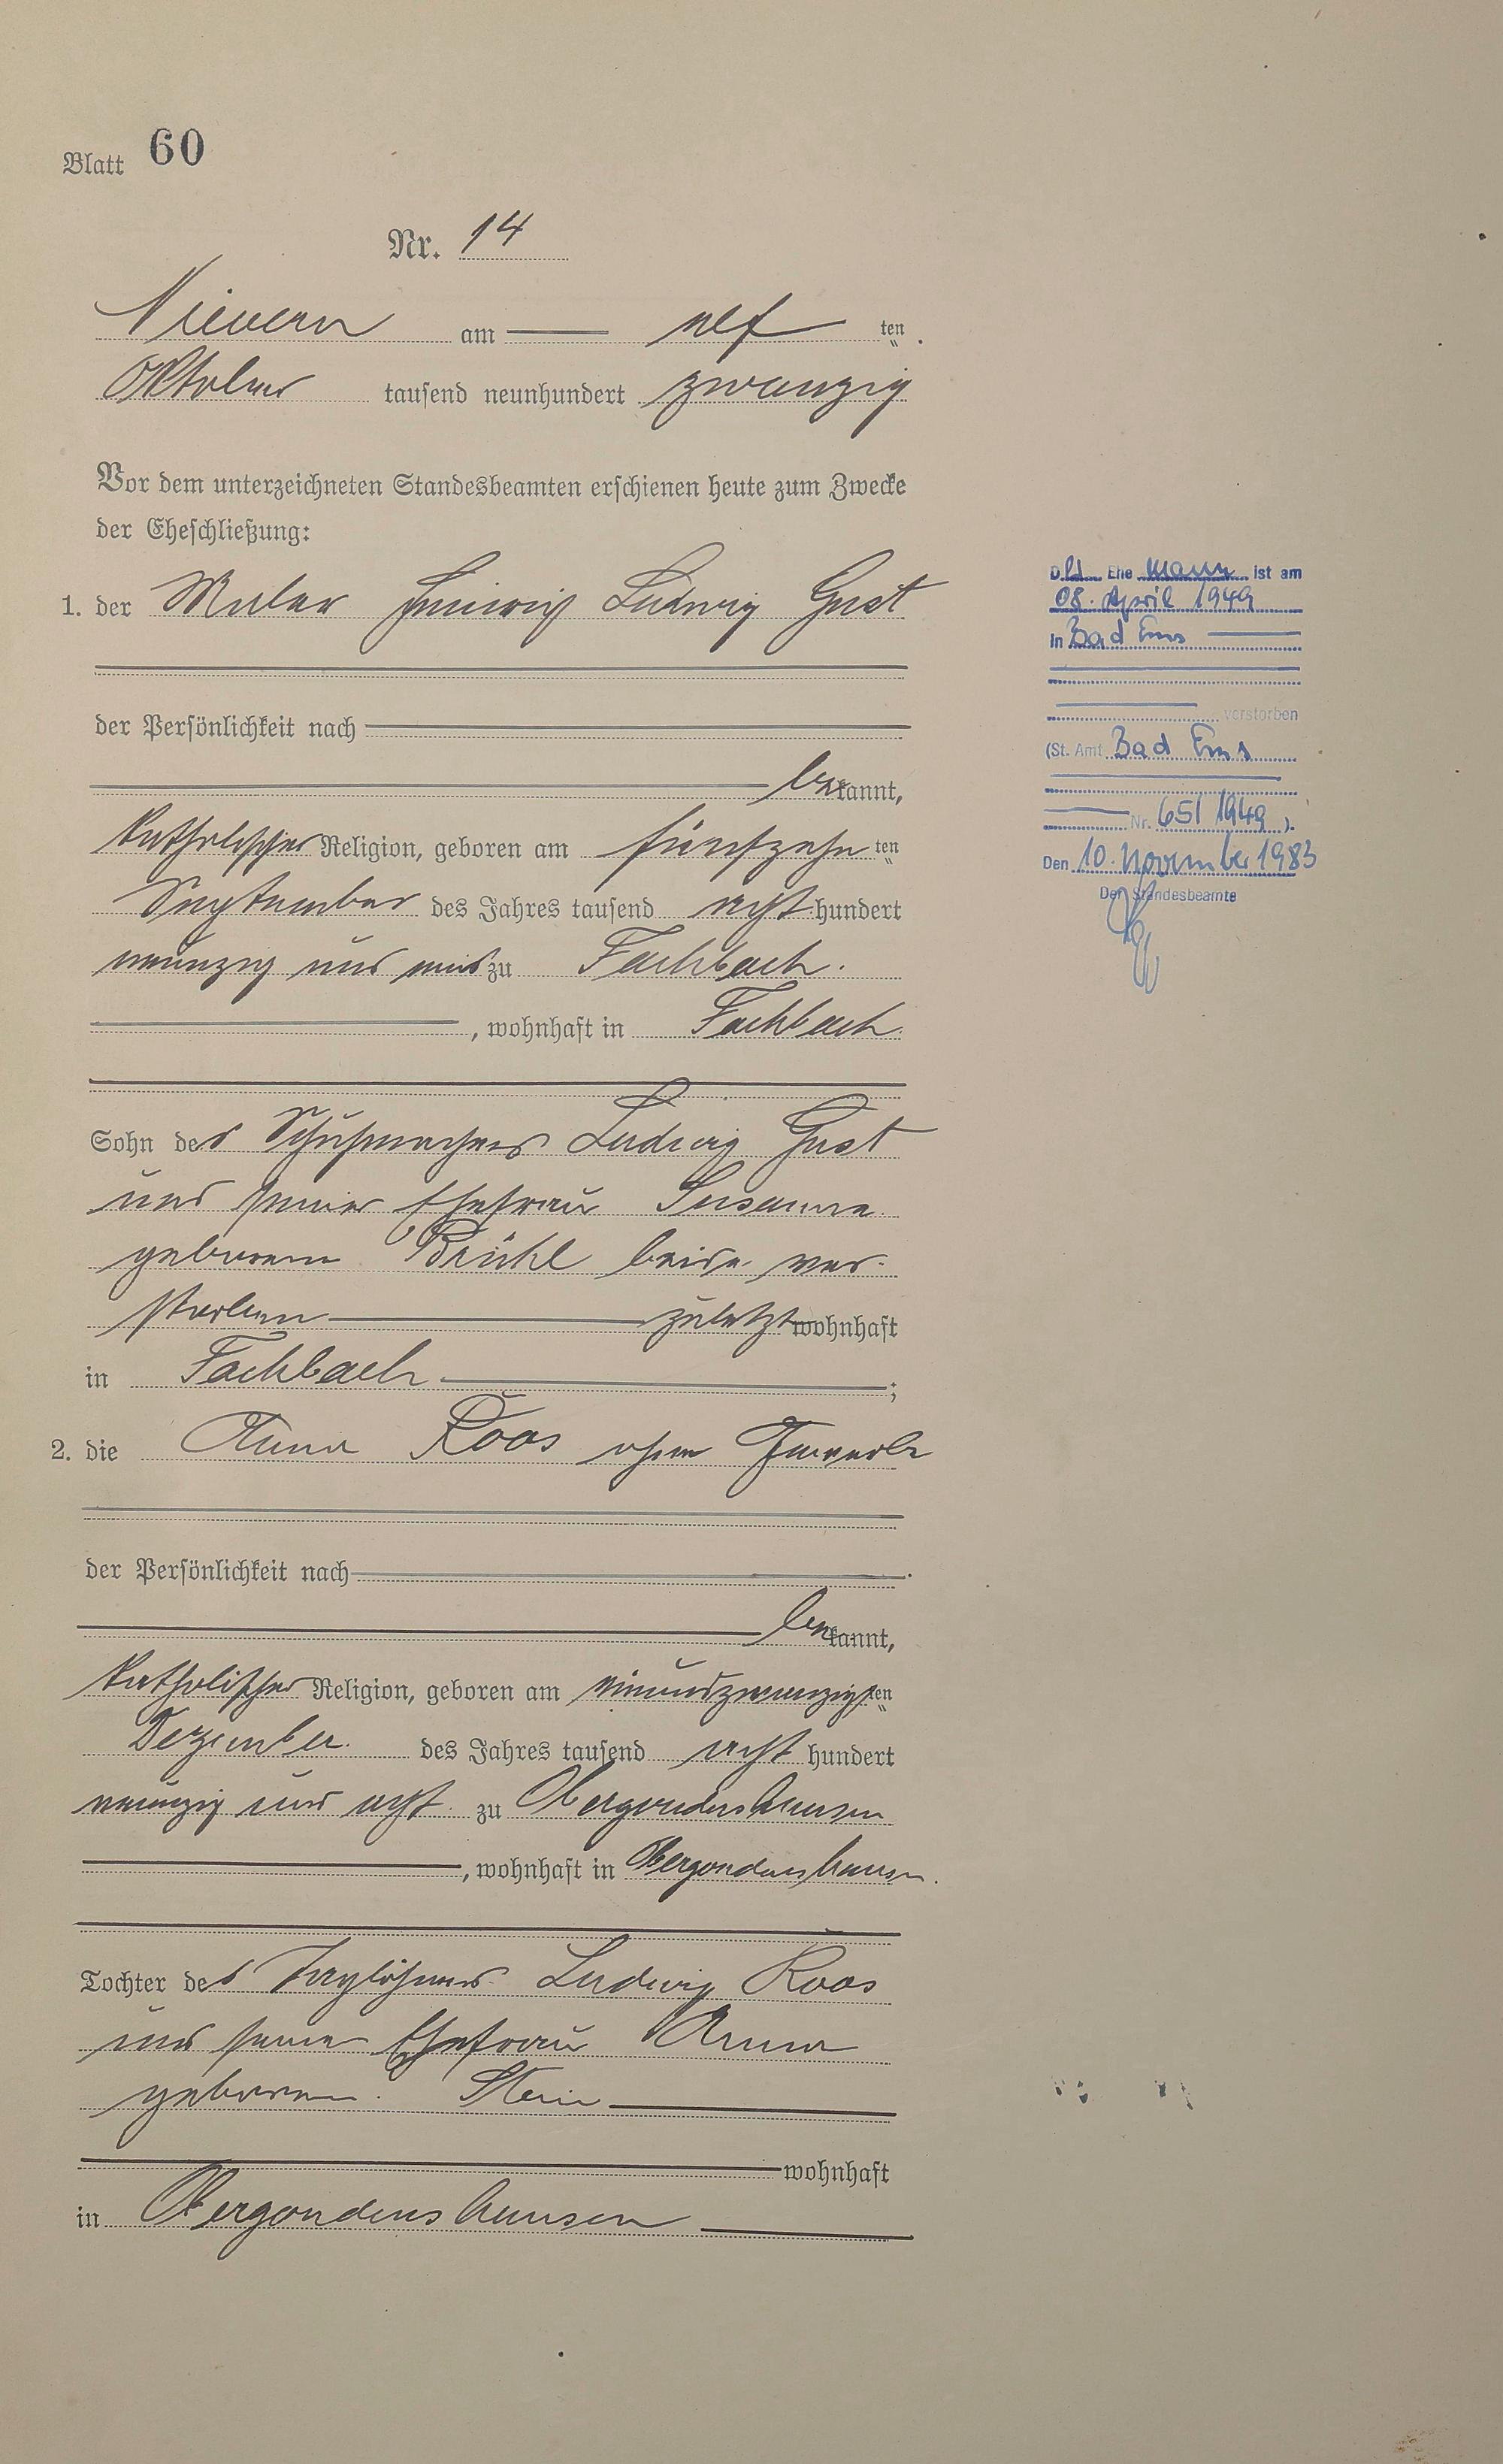 Blatt 60
Nr. 14
Nievern am elf ten
Oktober tausend neunhundert zwanzig
Vor dem unterzeichneten Standesbeamten erschienen heute zum Zwecke
der Eheschließung:
1. der Maler Heinrich Ludwig Gust
der Persönlichkeit nach
bekannt,
katholischer Religion, geboren am fünfzehn ten
September des Jahres tausend acht hundert
neunzig und zu Fachbach.
, wohnhaft in Fachbach.
Sohn des Schuhmachers Ludwig Gust
und seiner Ehefrau Susanna
geborene Brühl beide ver-
storben zuletzt wohnhaft
in Fachbach ;
2. die Anna Roos ohne Gewerbe
der Persönlichkeit nach
bekannt,
katholischer Religion, geboren am einundzwanzigsten
Dezember des Jahres tausend acht hundert
neunzig und acht zu Obergondershausen
, wohnhaft in Obergondershausen.
Tochter des Taglöhners Ludwig Roos
und seiner Ehefrau Anna
geborene Stein
wohnhaft
in Obergondershausen
D. Ehe mann ist am
08. April 1949
in Bad Ems
verstorben
(St. Amt Bad Ems
Nr. 65/1949 ).
Den 10. November 1983
Der Standesbeamte